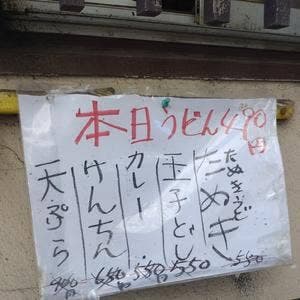 本日うどん490円
たぬきうどん
玉子とじ 550
カレー 550
けんちん 650
天ぷら 900